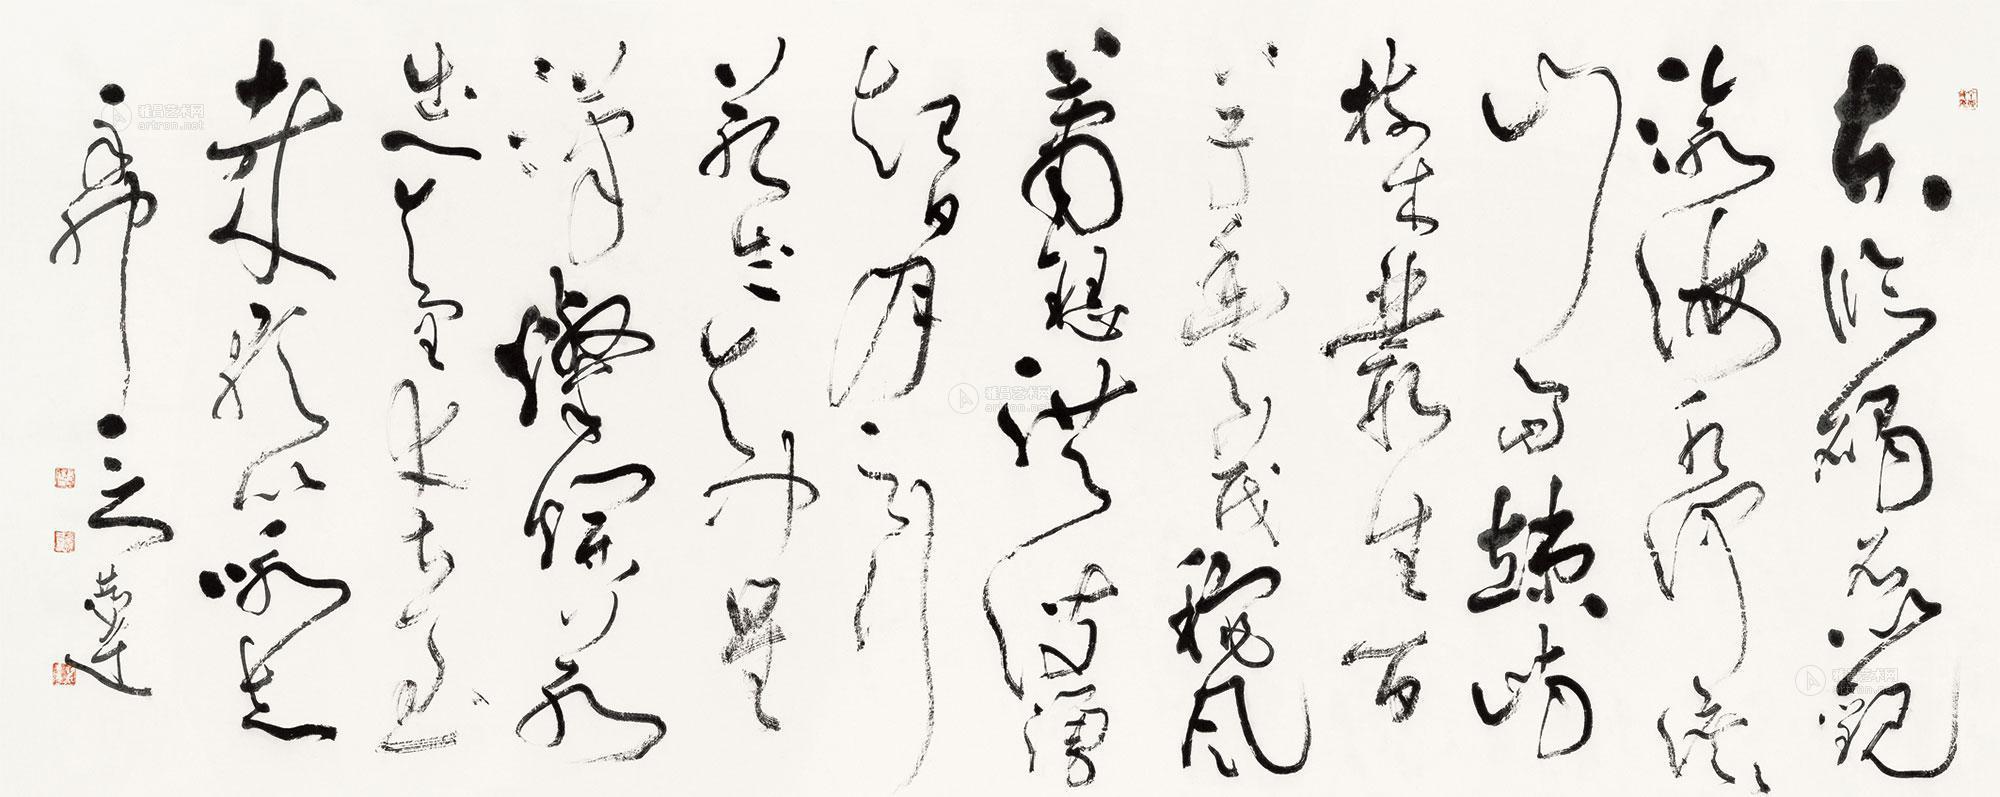 東臨碣石以觀
滄海水何澹澹
山島竦峙
樹木叢生百
草豐茂秋風
蕭瑟洪波湧
起日月之行
若出其中星
漢燦爛若
出其里幸甚至
哉歌以咏志
雅昌艺术网
artron.net